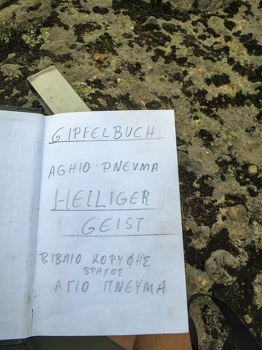 GIPFELBUCH
AGHIO PNEVMA
HEILIGER
GEIST
ΒΙΒΛΙΟ ΚΟΡΥΦΗΣ
ΒΡΑΧΟΣ
ΑΓΙΟ ΠΝΕΥΜΑ